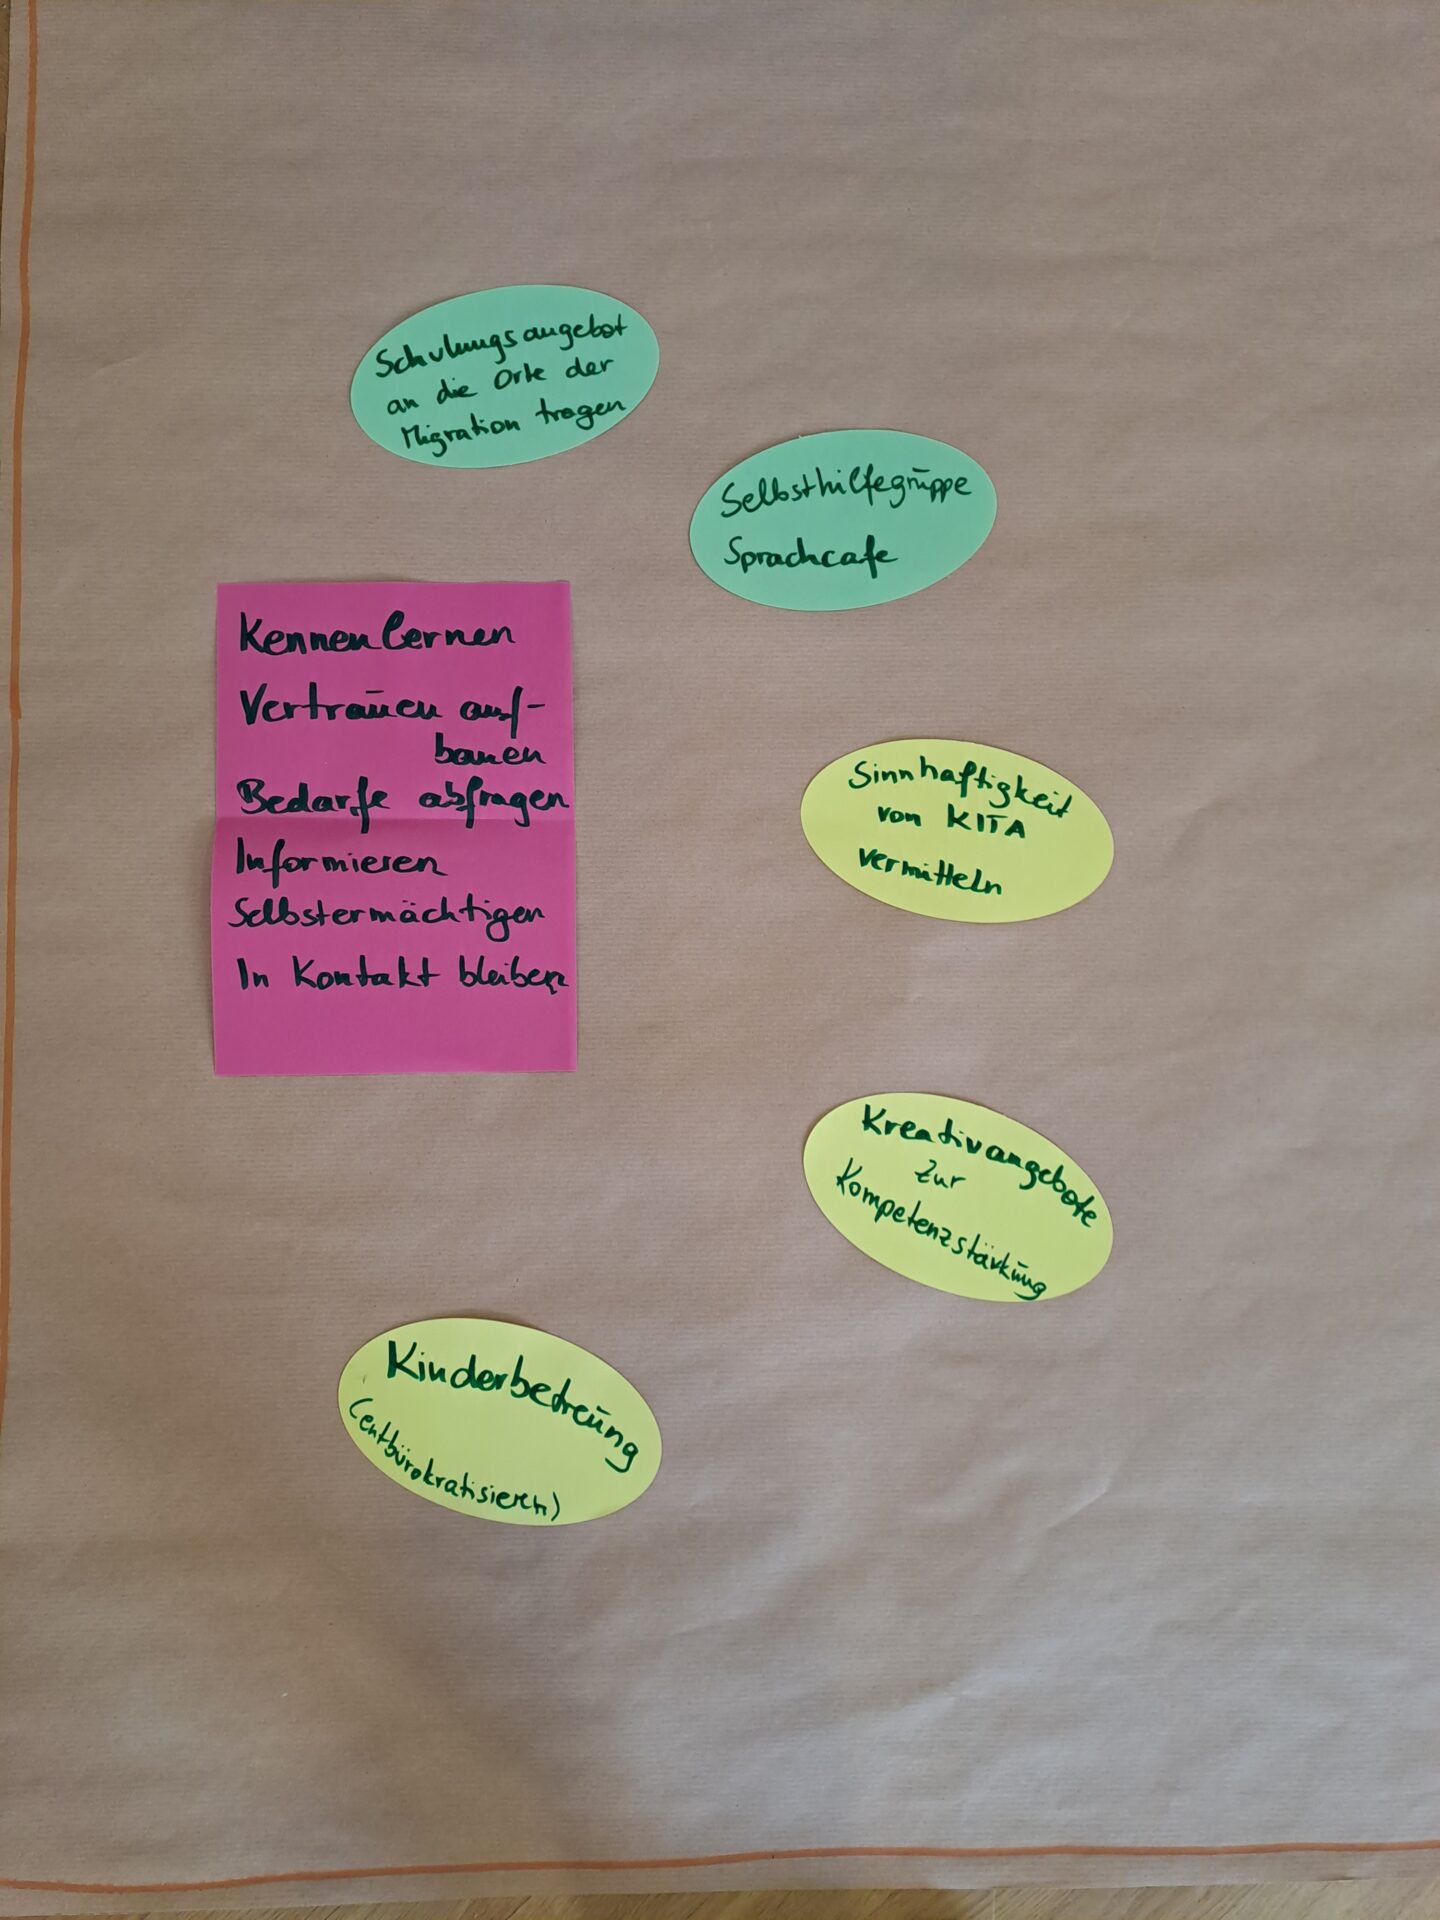 Schulungsangebot
an die Orte der
Migration tragen
Selbsthilfegruppe
Sprachcafe
Kennenlernen
Vertrauen auf-
bauen
Bedarfe abfragen
Informieren
Selbstermächtigen
In Kontakt bleiben
Sinnhaftigkeit
von KITA
vermitteln
Kreativangebote
zur
Kompetenzstärkung
Kinderbetreung
(entbürokratisieren)